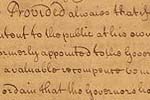 Provided always that
intent to the public at his own
formerly appointed to the Governor
a valuable recompence to m
ordain that the Governors ho